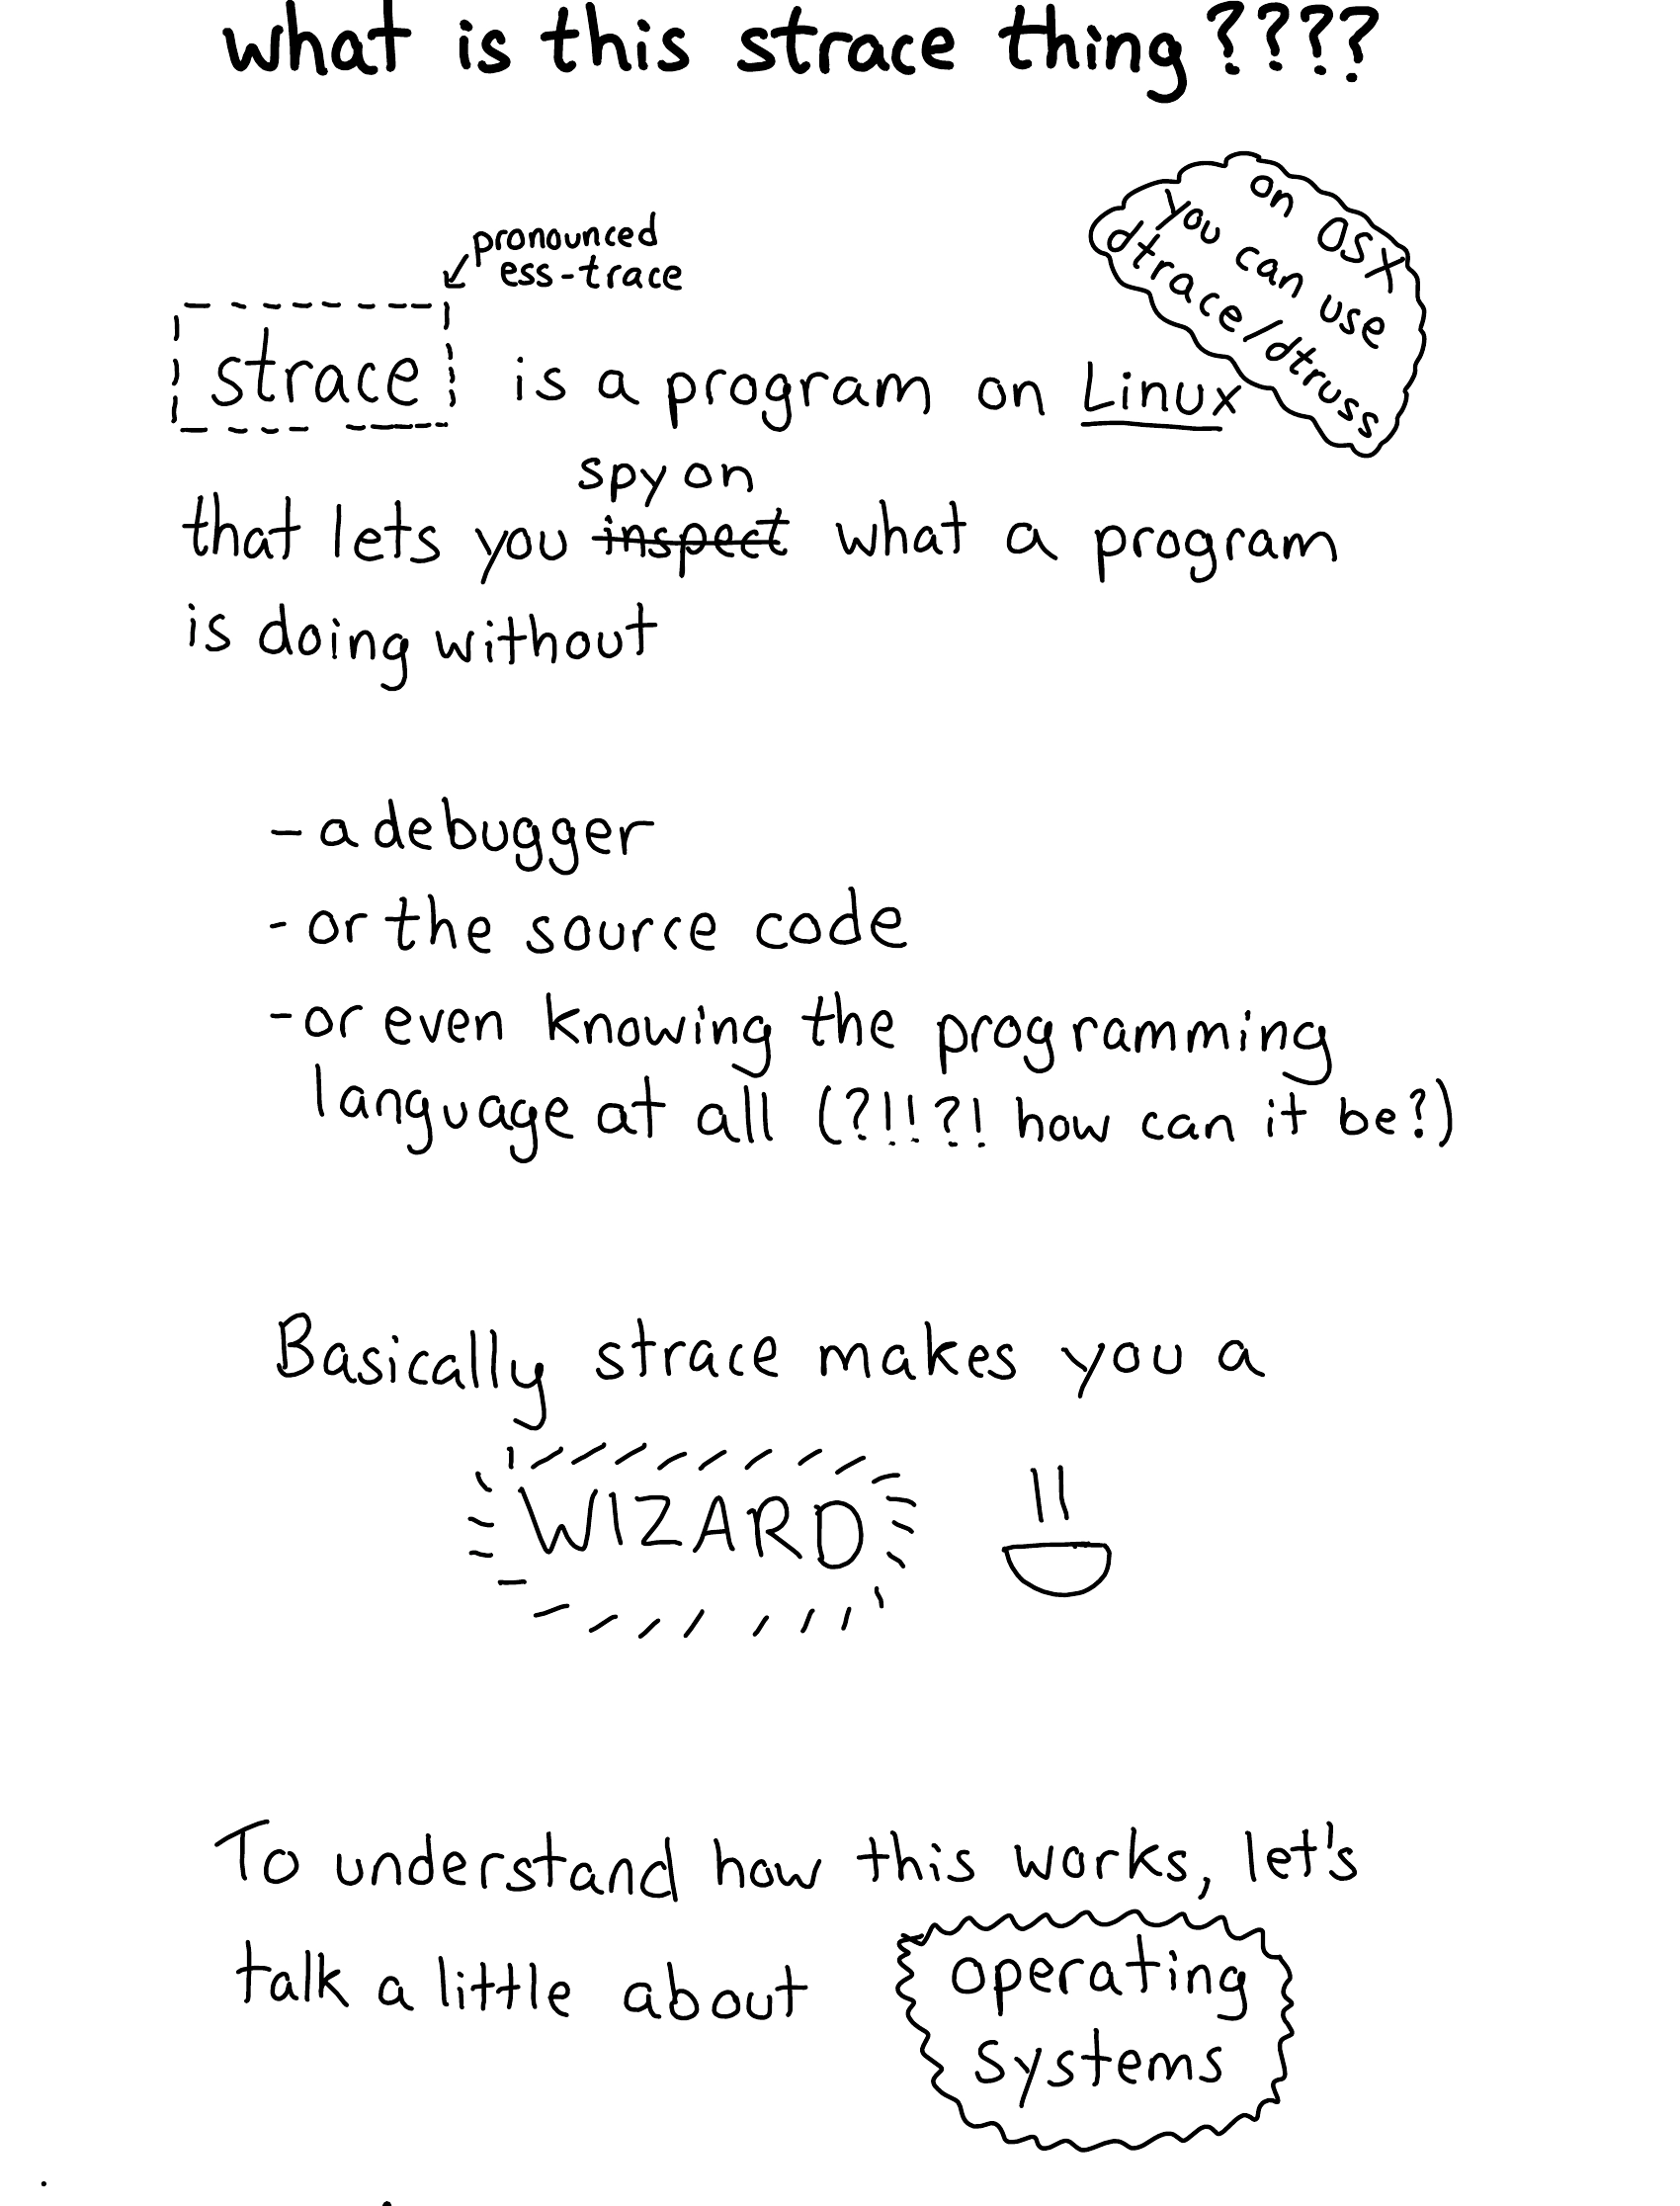 what is this strace thing????
on OSX
you can use
dtrace/dtruss
pronounced
ess-trace
strace is a program on Linux
spy on
that lets you inspect what a program
is doing without
- a debugger
- or the source code
- or even knowing the programming
language at all (?!!?! how can it be?)
Basically strace makes you a
WIZARD
To understand how this works, let's
talk a little about operating
systems